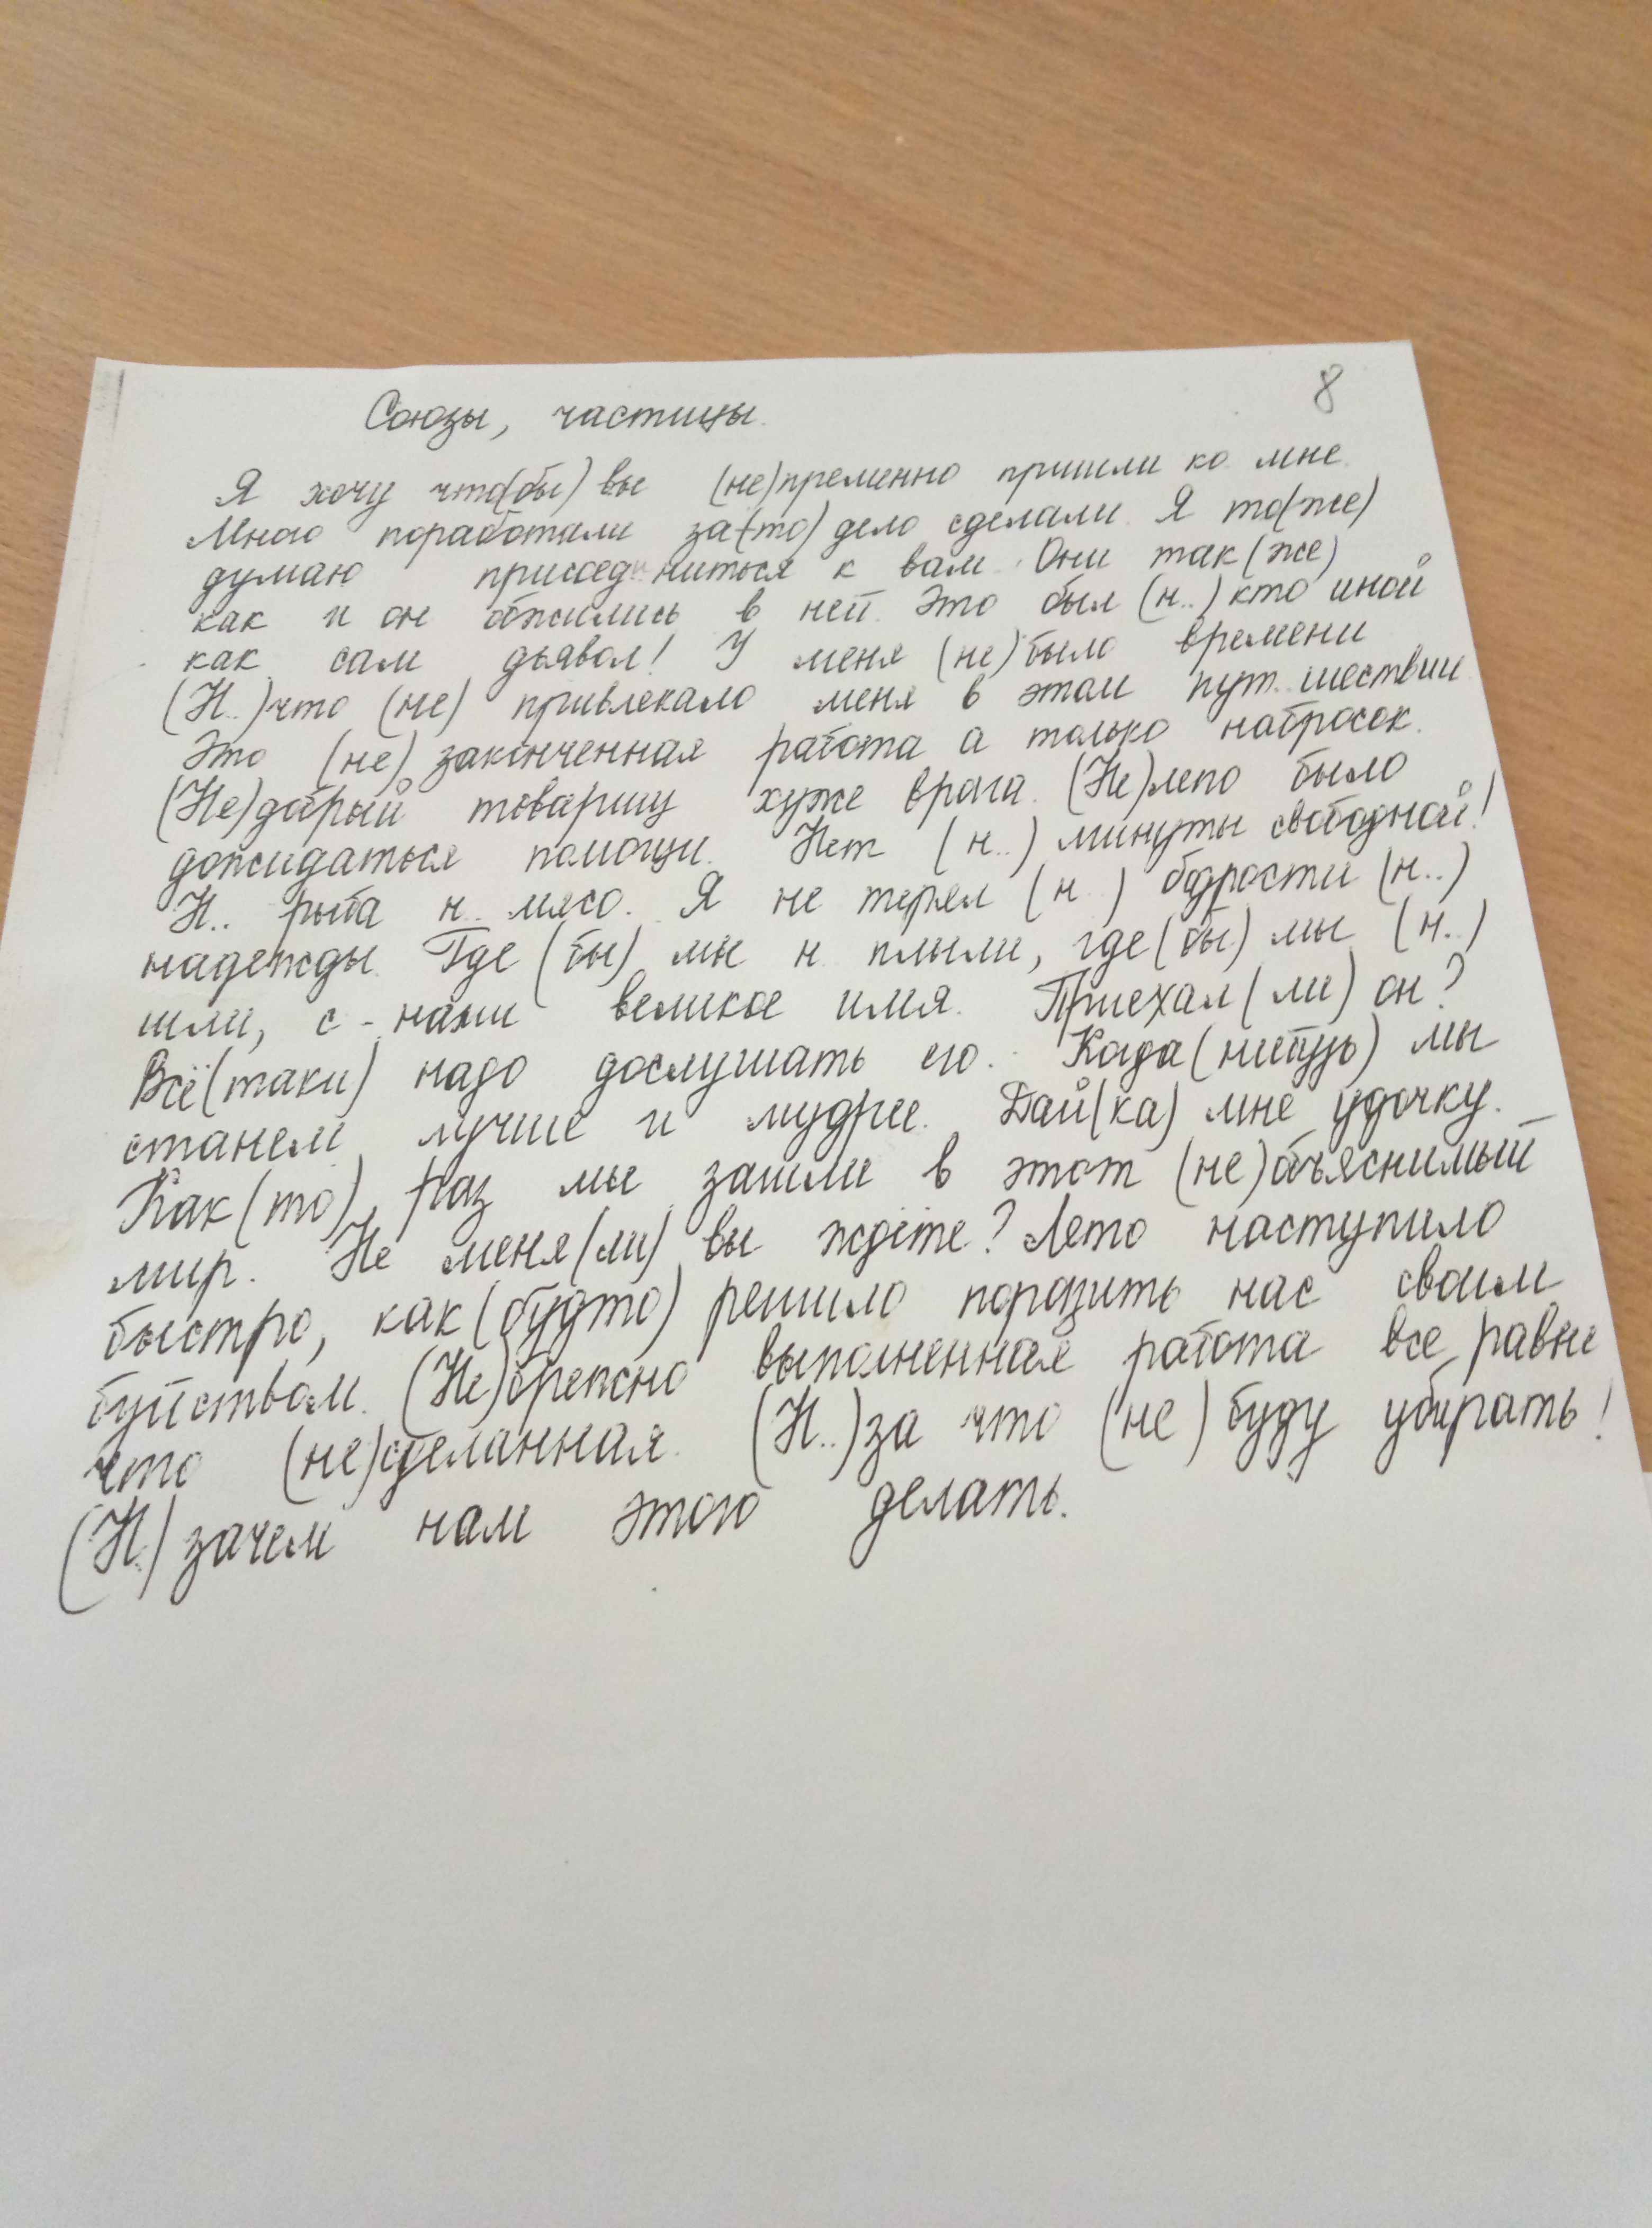 8
Союзы, частицы.
Я хочу что(бы) вы (не)пременно пришли ко мне.
Много поработали за(то) дело сделали. Я то(же)
думаю присоед..ниться к вам. Они так(же)
как и он обжились в ней. Это был (н..)кто иной
как сам дьявол! У меня (не)было времени
(Н..)что (не) привлекало меня в этом пут..шествии
Это (не)законченная работа а только набросок.
(Не)добрый товарищ хуже врага. (Не)лепо было
дожидаться помощи. Нет (н..) минуты свободной!
Н.. рыба н.. мясо. Я не терял (н..) бодрости (н..)
надежды. Где (бы) мы н.. плыли, где(бы) мы (н..)
шли, с - нами великое имя. Приехал(ли) он?
Всё(таки) надо дослушать его. Когда(нибудь) мы
станем лучше и мудрее. Дай(ка) мне удочку.
Как(то) раз мы зашли в этот (не)объяснимый
мир. Не меня(ли) вы ждёте? Лето наступило
быстро, как(будто) решило поразить нас своим
буйством. (Не)брежно выполненная работа все равно
что (не)сделанная. (Н..)за что (не) буду убирать!
(Н..)зачем нам этого делать.